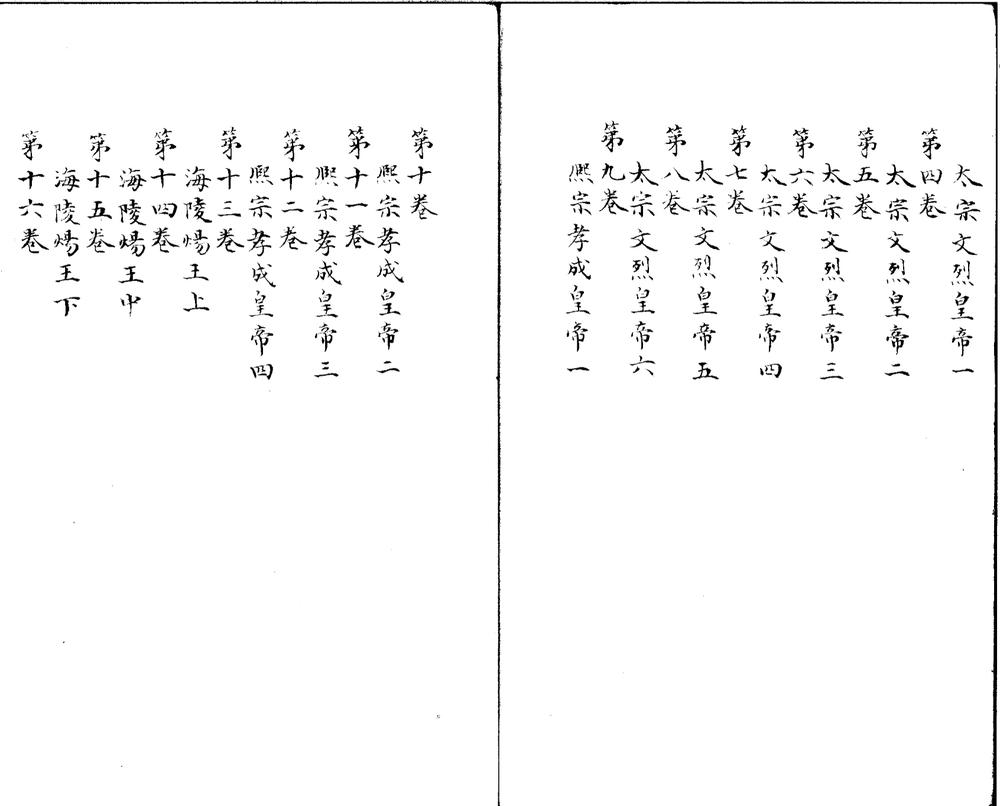 太宗文烈皇帝一
第四卷
太宗文烈皇帝二
第五卷
太宗文烈皇帝三
第六卷
太宗文烈皇帝四
第七卷
太宗文烈皇帝五
第八卷
太宗文烈皇帝六
第九卷
熙宗孝成皇帝一
第十卷
熙宗孝成皇帝二
第十一卷
熙宗孝成皇帝三
第十二卷
熙宗孝成皇帝四
第十三卷
海陵煬王上
第十四卷
海陵煬王中
第十五卷
海陵煬王下
第十六卷